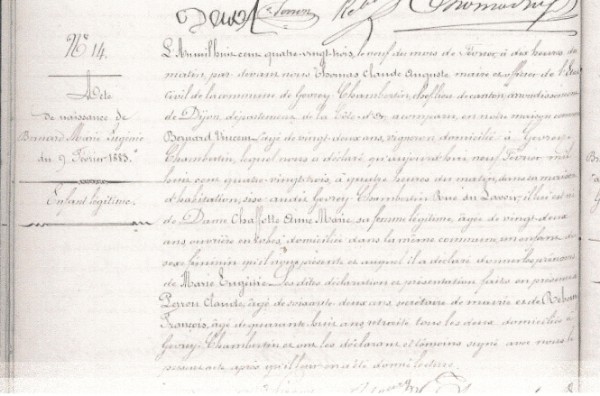 N° 14.
Acte
de naissance de
Marie Eugénie
du 9 Février 1883.
Enfant légitime.
L'An mil huit cent quatre-vingt-trois, le neuf du mois de Février à dix heures du
matin, par devant nous Thomas Claude Auguste, maire et officier de l'État
civil de la commune de Gevrey-Chambertin, chef-lieu de canton, arrondissement
de Dijon, département de la Côte d'Or, a comparu, en notre maison commune
Vincent, âgé de vingt-deux ans, vigneron domicilié à Gevrey-
Chambertin, lequel nous a déclaré qu'aujourd'hui neuf Février mil
huit cent quatre-vingt-trois, à quatre heures du matin, dans sa maison
d'habitation, sise audit Gevrey-Chambertin Rue du Lavoir, il lui est né
de Dame Anne Marie, sa femme légitime, âgée de vingt-deux
ans ouvrière en robes, domiciliée dans la même commune, un enfant du
sexe féminin qu'il nous présente et auquel il a déclaré donner les prénoms
de Marie Eugénie. Les dites déclaration et présentation faites en présence
Claude, âgé de soixante-deux ans, secrétaire de mairie et de
François, âgé de quarante huit ans retraité tous les deux domiciliés à
Gevrey-Chambertin et ont les déclarant et témoins signé avec nous le
présent acte après qu'il leur en a été donné lecture.